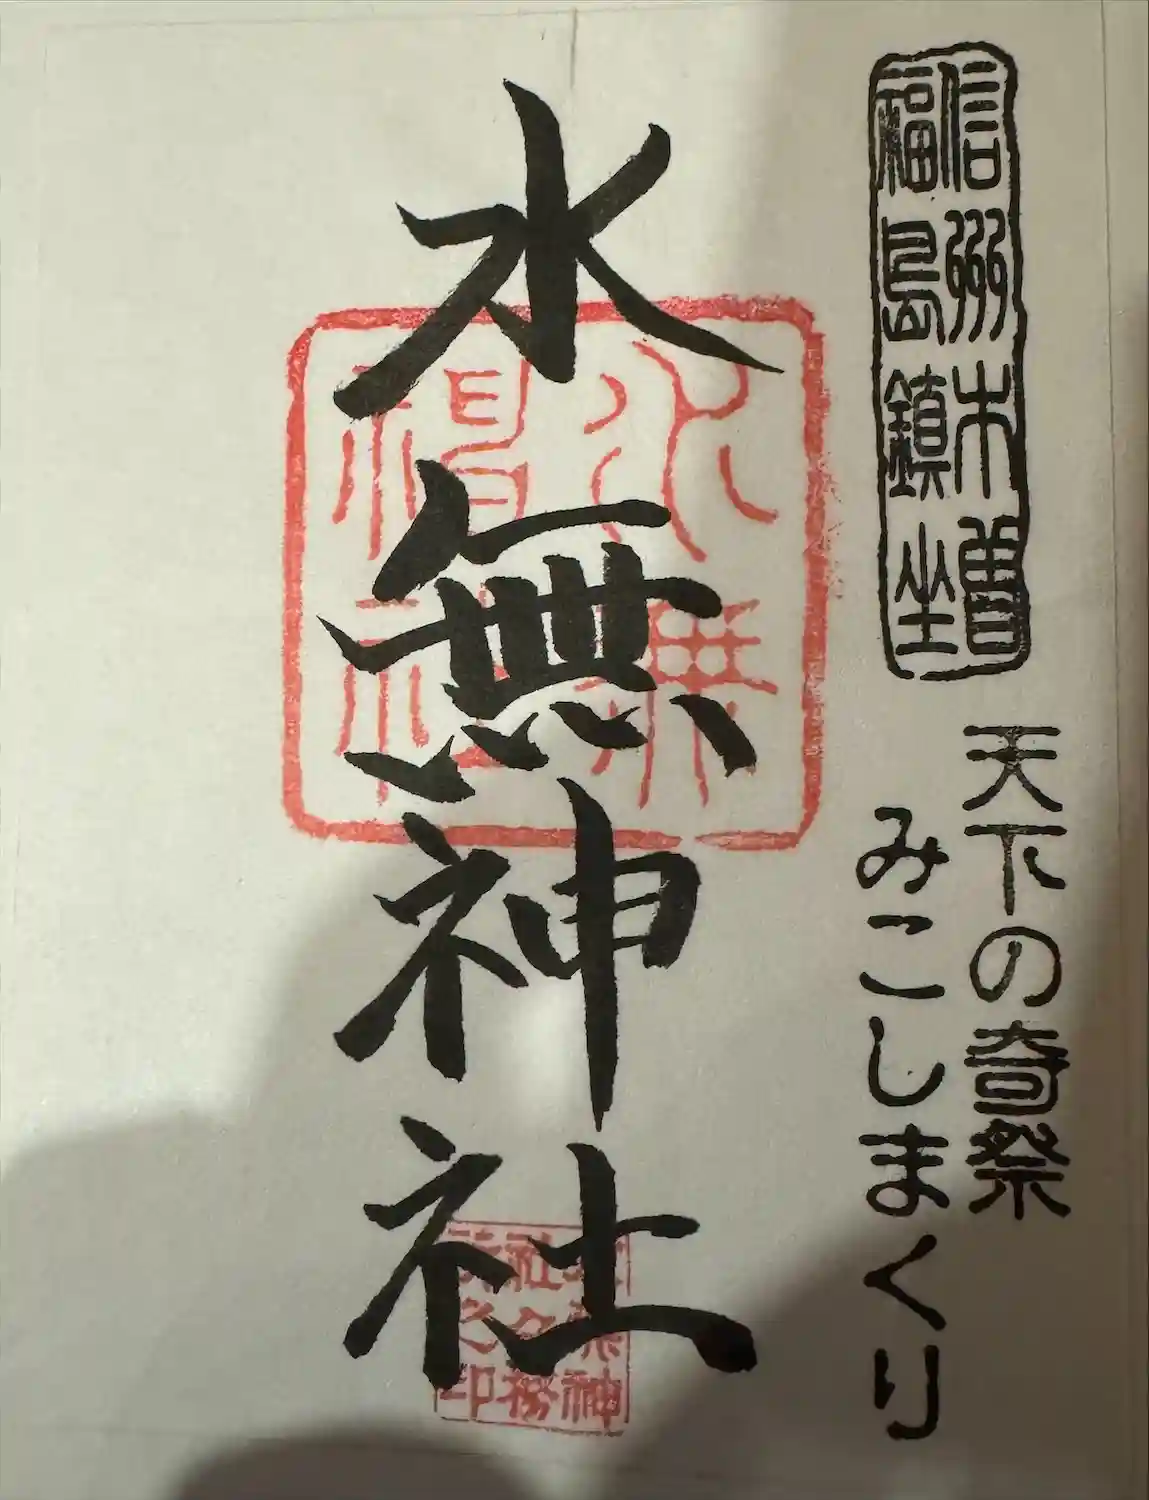 信州木曽
福島鎮坐
天下の奇祭
みこしまくり
水無神社
水無
神社